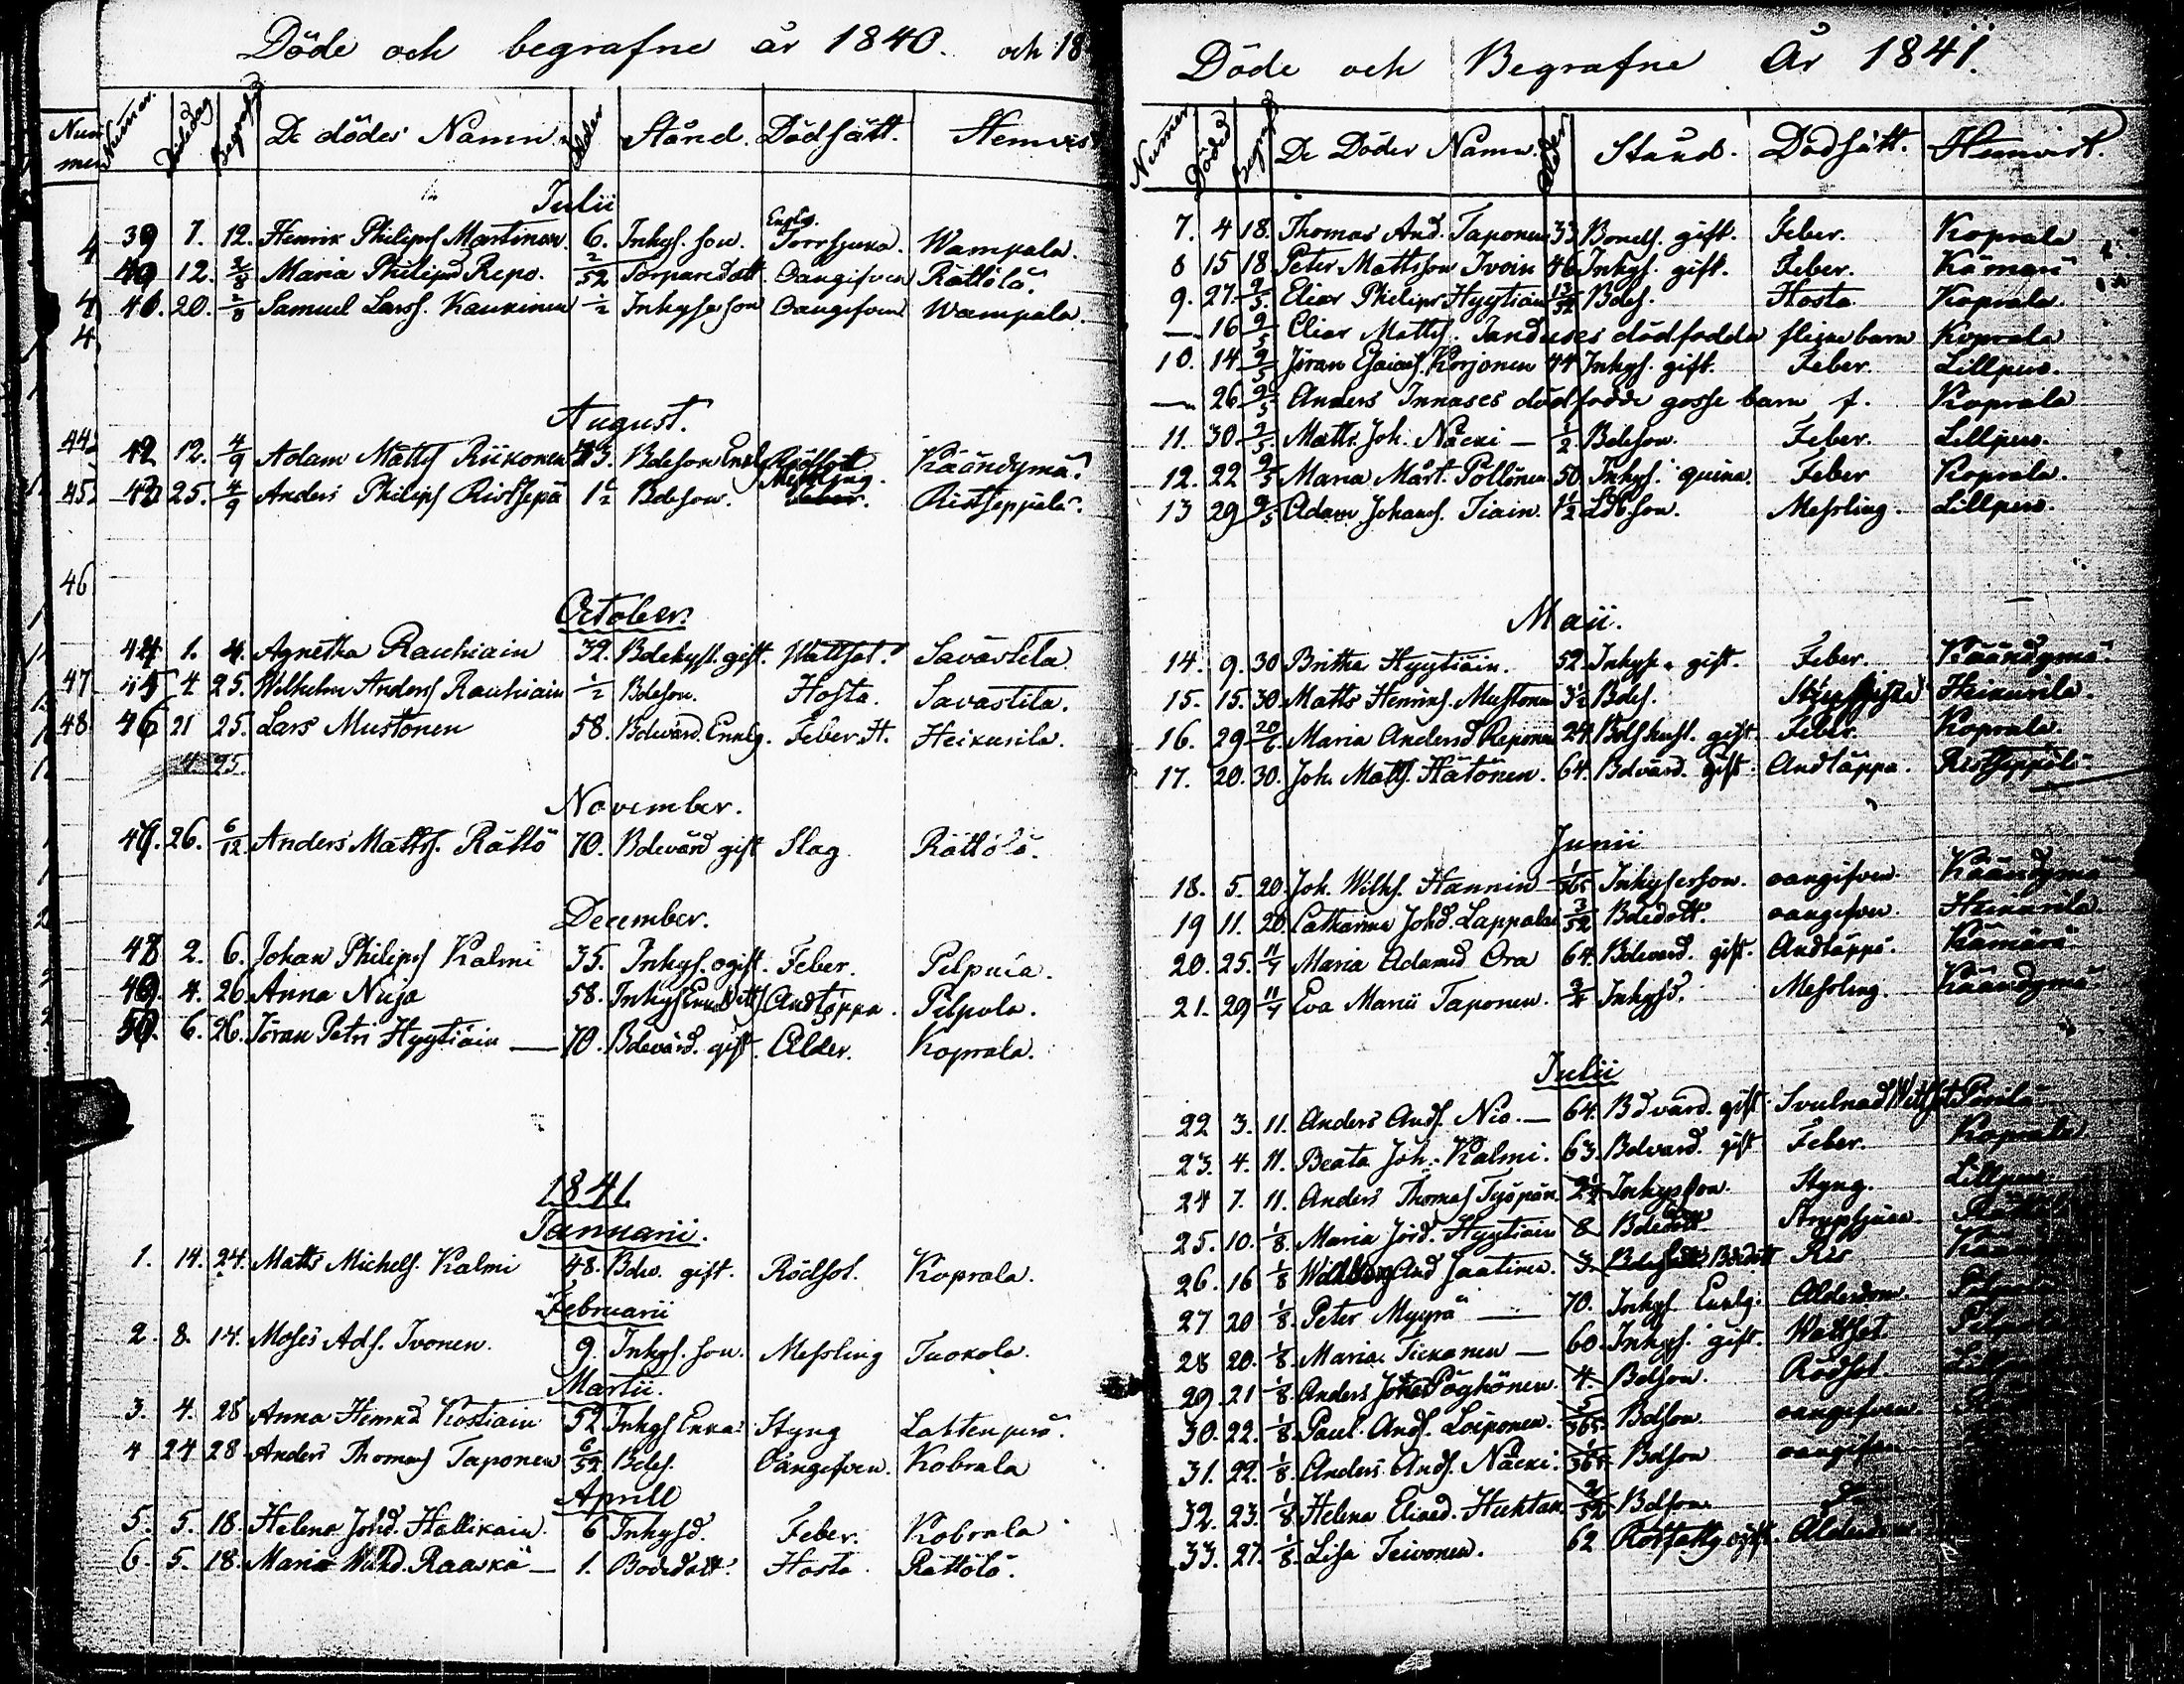 Döde och begrafne år 1840. och 18
Numer. Dödedag Begrafd De dödes Namn. Ålder Stånd. Dödssätt. Hemvis
Julii
39 7. 12. Henrik Philips Martinen. 6. Inhys. son. Torrsjuka. Wampala.
40 12. 2/8 Maria Philipsd Repo. 2/52 Torparedott. Oangifven Rättölä.
41. 20. 2/8 Samuel Larss. Kaukinen 1/2 Inhyses son Oangifven Wampala.
August.
44 42 12. 4/9 Adam Matts Riikonen 43. Bdeson Enkl Rödsot Käändymä.
45. 43 25. 4/9 Anders Philips Ristsepä 1 1/2 Bdeson. Messling. Ristseppälä.
46
October.
44 1. 4. Agnetha Rauhiain 32. Bdehust. gift. Wattsot. Savastila
47. 45 4 25. Wilhelm Anders Rauhiain 1/2 Bdeson. Hosta. Savastila.
48 46 21 25. Lars Mustonen 58. Bdevärd. Enklg. Feber. H. Heikurila.
4. 25.
November.
47. 26. 6/12. Anders Matts. Rättö 70. Bdevärd gift Slag Rättölä.
December.
48 2. 6. Johan Philips Kalmi 35. Inhys. ogift. Feber. Pilpula.
49. 4. 26 Anna Nuja 58. Inhys Andtäppa. Pilpola.
50. 6. 26. Jöran Petri Hyytiäin — 70. Bdevärd. gift. Ålder. Koprala.
1841.
Januarii.
1. 14. 24. Matts Michels. Kalmi 48. Bdev. gift. Rödsot. Koprala.
Februarii
2. 8. 14. Moses Ads. Ivonen. 9. Inhys. son. Messling Tuokola.
Martii.
3. 4. 28 Anna Henrsd Kostiain 52 Inhys Enka Styng Lahtenperä.
4 24 28 Anders Thomas Taponen 6/52 Bdes. Oangifven. Kobrala
Aprill
5. 5. 18. Helena Johd. Hallikain. 6 Inhysd. Feber. Kobrala
6. 5. 18. Maria Wilhd. Raaskä — 1. Bdedott. Hosta. Rättölä.
Döde och Begrafne År 1841.
Numer Död Begraf De Döder Namn. Ålder Stånd. Dödssätt. Hemvist.
7. 4 18. Thomas And. Taponen 33 Bondes. gift. Feber. Koprala
8 15 18 Peter Mattsson Ivoin 46 Inhys. gift. Feber. Kämärä
9. 27. 2/5. Elias Philips Hyytiäin 13/52 Bdes. Hosta Koprala.
— 16 2/5 Elias Matts. dödfödda flickebarn Koprala
10. 14 2/5 Jöran Esaias. Korjonen 44 Inhys. gift. Feber. Lillpero.
— 26 2/5 Anders Innases dödfödde gosse barn f. Koprala
11. 30 2/5 Matts Joh. Näcki — 1/2 Bdeson. Feber. Lillpero.
12. 22 2/5 Maria Mårt. Pöllönen 50. Inhys. quina. Feber Koprala.
13 29 2/5 Adam Johans. Tiain. 1 1/2 son. Messling. Lillpero.
Maii.
14. 9. 30 Britha Hyytiäin. 52. Inhys. gift. Feber. Käändymä.
15. 15. 30. Matts Henriks. Mustonen 3 1/2 Bdes. Heikurila.
16. 29 20/6. Maria Andersd. Reponen 24. Bdshust. gift. Feber. Koprala.
17. 20. 30. Joh. Matts. Hätönen. 64. Bdvärd. gift. Andtäppa. Ristseppälä
Junii
18. 5. 20. Joh. Wilhs. Hannin 1/365 Inhysesson. oangifven Käändymä
19 11. 20. Catharina Johd. Lappalai 3/52 Bdedott. oangifven. Heikurila.
20. 25. 11/7 Maria Adamsd Ora 64. Bdevärd. gift. Andtäppa. Kämärä
21. 29 11/7 Eva Marii Taponen. 3/4 Inhysd. Messling. Käändymä.
Julii
22 3. 11. Anders Ands. Nio. — 64. Bdvärd. gift. Svulnad
23. 4. 11. Beata Joh. Kalmi. 63. Bdvärd. gift Feber. Koprala
24 7. 11. Anders Thomas 2 1/4 Inhysson. Styng. Lillpero
25. 10. 1/8. Maria Jörd. Hyytiäin 8 Bdedott Strypsjuka.
26. 16 1/8 And Jaatinen. 3. Bdedott Ris
27 20 1/8. Peter Myyrä — 70. Inhys Enklg. Alderdom.
28 20. 1/8. Maria Tiekanen — 60. Inhys. gift. Wattsot
29 21 1/8. Anders Pöyhönen. 4. Bdson. Rödsot.
30. 22. 1/8. Paul. Ands. Loiponen. 5/365. Bdson oangifven.
31. 22. 1/8. Anders Ands. Näcki. 1/365 Bdson oangifven
32. 23. 1/8. Helena Eliasd. Huhtan. 2/52 Bdson.
33. 27. 1/8. Lisa Teivonen. 62 Rotfattg. ogift. Alderdom